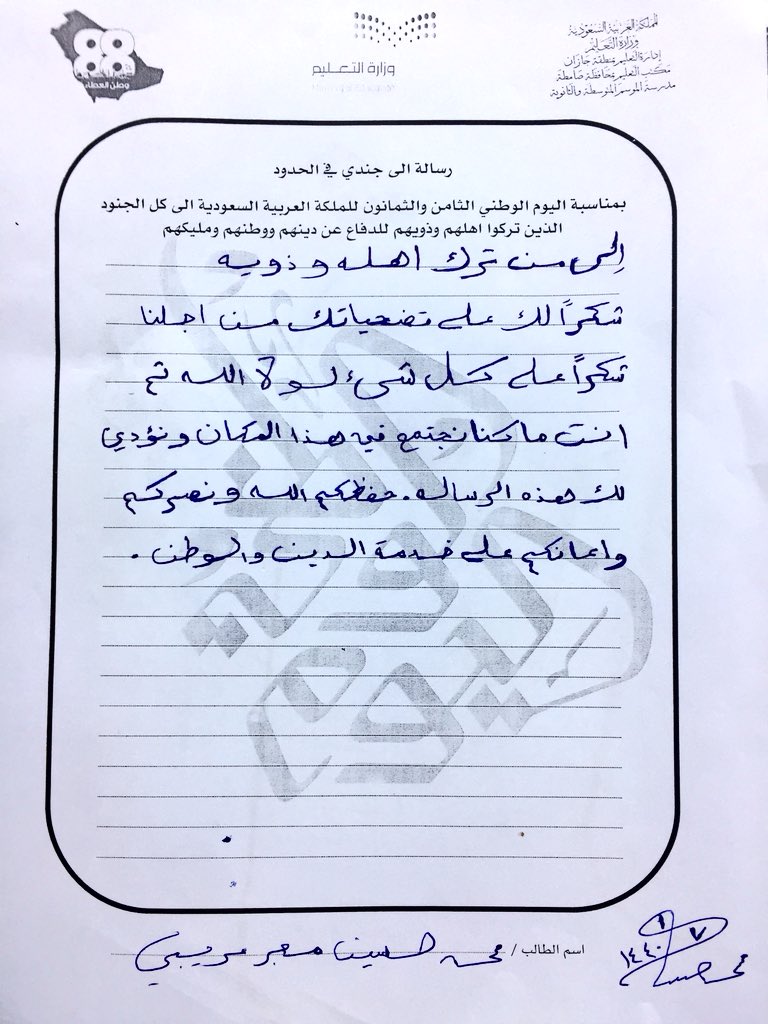 المملكة العربية السعودية
وزارة التعليم
إدارة التعليم بمنطقة جازان
مكتب التعليم بمحافظة صامطة
مدرسة الموسم المتوسطة والثانوية
وزارة التعليم
88
وطن العطاء
رسالة الى جندي في الحدود
بمناسبة اليوم الوطني الثامن والثمانون للملكة العربية السعودية الى كل الجنود
الذين تركوا اهلهم وذويهم للدفاع عن دينهم ووطنهم ومليكهم
إلى من ترك اهله وذويه
شكراً لك على تضحياتك من اجلنا
شكراً على كل شيء لولا الله ثم
انت ماكنا نجتمع في هذا المكان ونؤدي
لك هذه الرساله. حفظكم الله ونصركم
واعانكم على خدمة الدين والوطن .
اسم الطالب / محمد حسين معبر عريبي
١٤٤٠